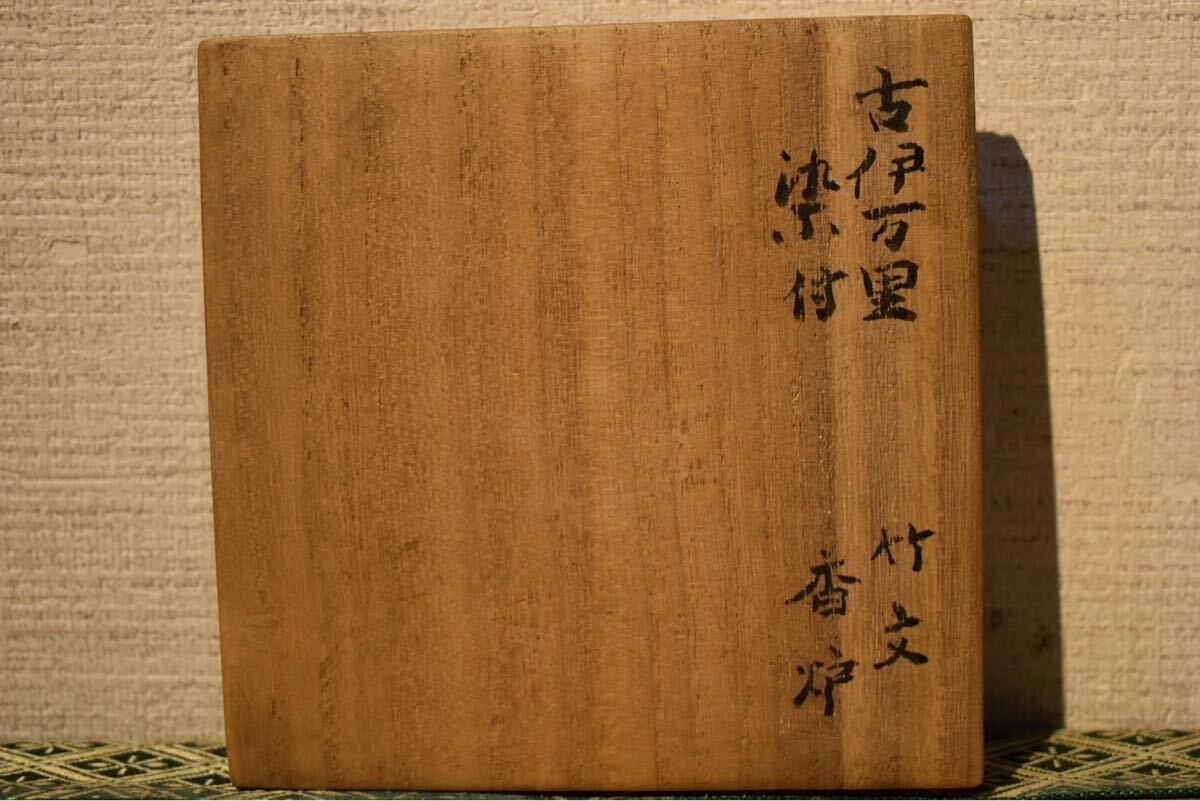 古伊万里
染付
竹文
香炉